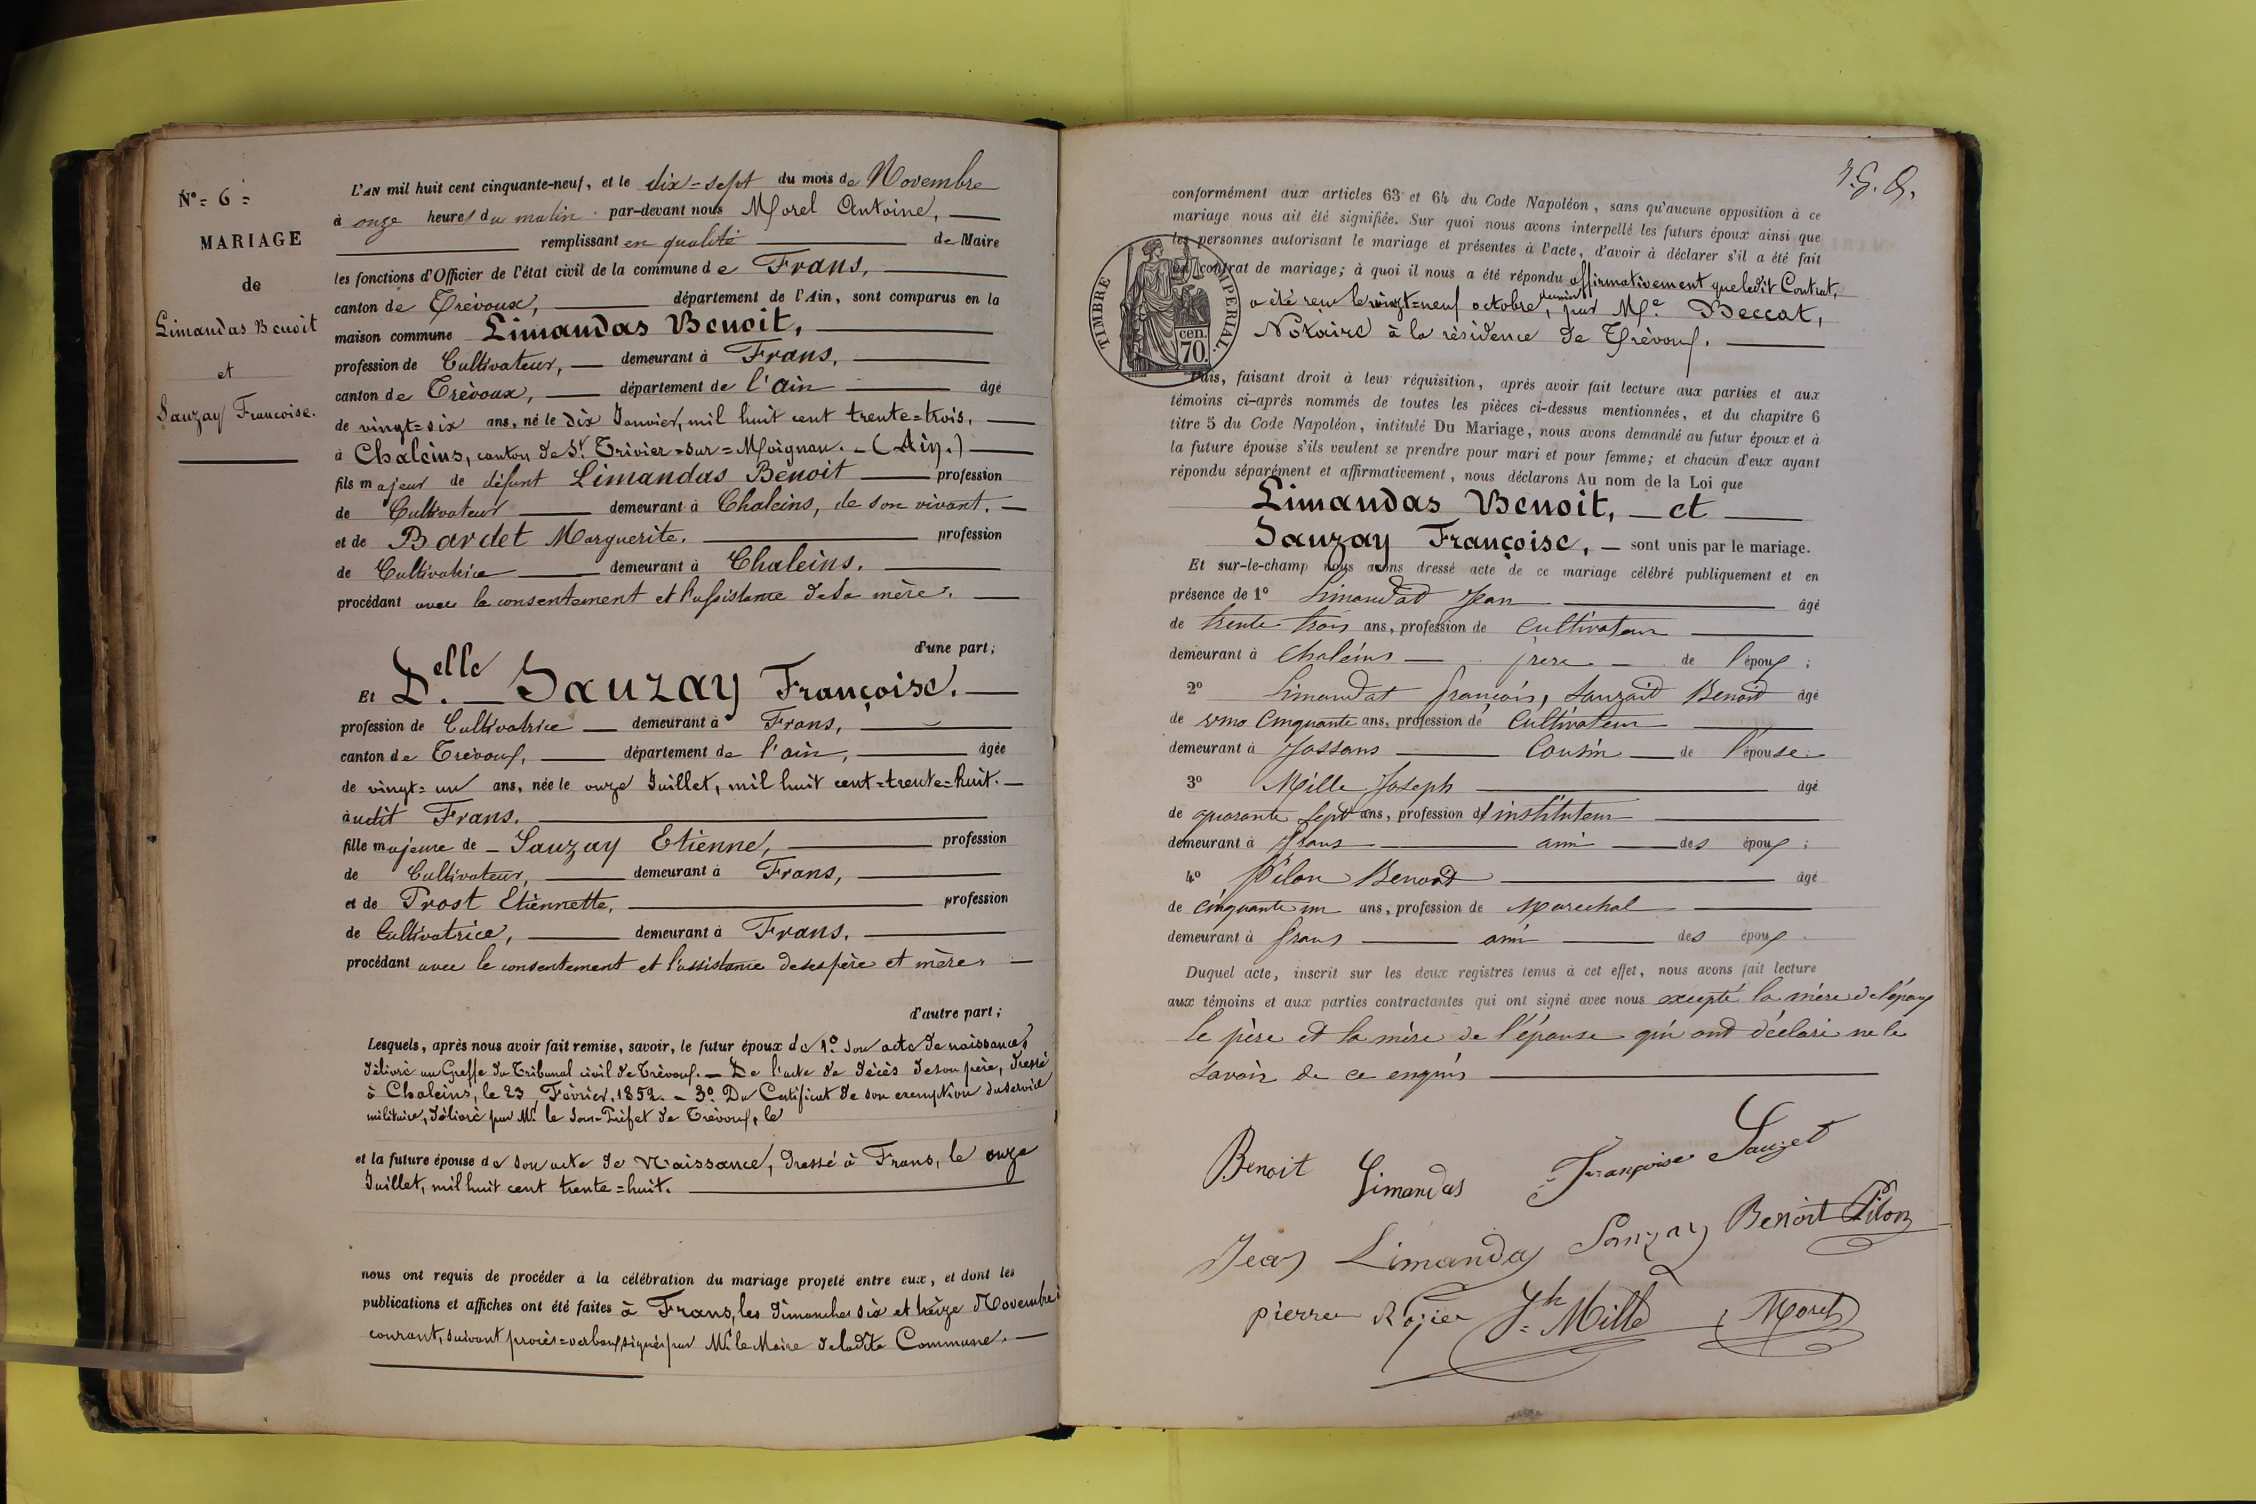 N.° = 6 =
MARIAGE
de
Limandas Benoit
et
Sauzay Francoise.
L'AN mil huit cent cinquante-neuf, et le dix=sept du mois de Novembre
à onze heures du matin par-devant nous Morel Antoine,
remplissant en qualité de Maire
les fonctions d'Officier de l'état civil de la commune de Frans,
canton de Trévoux, département de l'Ain, sont comparus en la
maison commune Limandas Benoit,
profession de Cultivateur, demeurant à Frans,
canton de Trévoux, département de l'ain âgé
de vingt=six ans, né le dix Janvier, mil huit cent trente=trois,
à Chaleins, canton de St. Trivier=sur=Moignan. (Ain.)
fils majeur de défunt Limandas Benoit profession
de Cultivateur demeurant à Chaleins, de son vivant.
et de Bardet Marguerite. profession
de Cultivatrice demeurant à Chaleins.
procédant avec le consentement et l'assistance de sa mère.
d'une part;
Et Delle. Sauzay Françoise.
profession de Cultivatrice demeurant à Frans,
canton de Trévoux, département de l'ain, âgée
de vingt=un ans, née le onze Juillet, mil huit cent=trente=huit.
àudit Frans.
fille majeure de Sauzay Etienne, profession
de Cultivateur, demeurant à Frans,
et de Prost Etiennette, profession
de Cultivatrice, demeurant à Frans.
procédant avec le consentement et l'assistance de ses père et mère.
d'autre part;
Lesquels, après nous avoir fait remise, savoir, le futur époux de 1.° son acte de naissance,
délivré au Greffe du Tribunal civil de Trévoux. — De l'acte de décès de son père, dressé
à Chaleins, le 23 Février, 1852. — 3.° Du Certificat de son exemption du service
militaire, délivré par Mr. le Sous-Préfet de Trévoux, le
et la future épouse de son acte de Naissance, dressé à Frans, le onze
Juillet, mil huit cent trente=huit.
nous ont requis de procéder à la célébration du mariage projeté entre eux, et dont les
publications et affiches ont été faites à Frans, les dimanches six et treize Novembre
courant, suivant procès=verbaux signés par Mr. le Maire de ladite Commune.
conformément aux articles 63 et 64 du Code Napoléon, sans qu'aucune opposition à ce
mariage nous ait été signifiée. Sur quoi nous avons interpellé les futurs époux ainsi que
les personnes autorisant le mariage et présentes à l'acte, d'avoir à déclarer s'il a été fait
un contrat de mariage; à quoi il nous a été répondu affirmativement que ledit Contrat,
a été reçu le vingt=neuf octobre, dernier par Me. Beccat,
Notaire à la résidence de Trévoux.
TIMBRE IMPERIAL.
70.
cen.
Puis, faisant droit à leur réquisition, après avoir fait lecture aux parties et aux
témoins ci-après nommés de toutes les pièces ci-dessus mentionnées, et du chapitre 6
titre 5 du Code Napoléon, intitulé Du Mariage, nous avons demandé au futur époux et à
la future épouse s'ils veulent se prendre pour mari et pour femme; et chacun d'eux ayant
répondu séparément et affirmativement, nous déclarons Au nom de la Loi que
Limandas Benoit, — et
Sauzay Françoise, — sont unis par le mariage.
Et sur-le-champ nous avons dressé acte de ce mariage célébré publiquement et en
présence de 1° Limandat Jean âgé
de trente trois ans, profession de cultivateur
demeurant à chaleins frere de l'époux;
2° Limandat françois, Sauzait Benoit âgé
de Cinquante ans, profession de Cultivateur
demeurant à Jassans Cousin de l'épouse
3° Mille Joseph âgé
de quarante sept ans, profession d'instituteur
demeurant à frans ami des époux;
4° Pilon Benoit âgé
de cinquante un ans, profession de Marechal
demeurant à frans ami des époux
Duquel acte, inscrit sur les deux registres tenus à cet effet, nous avons fait lecture
aux témoins et aux parties contractantes qui ont signé avec nous excepté la mère de l'époux
le père et la mère de l'épouse qui ont déclaré ne le
savoir de ce enquis
Benoit Limandas Françoise Sauzet
Jean Limandas Sauzay Benoit Pilon
pierre Rogier Jh Mille Morel